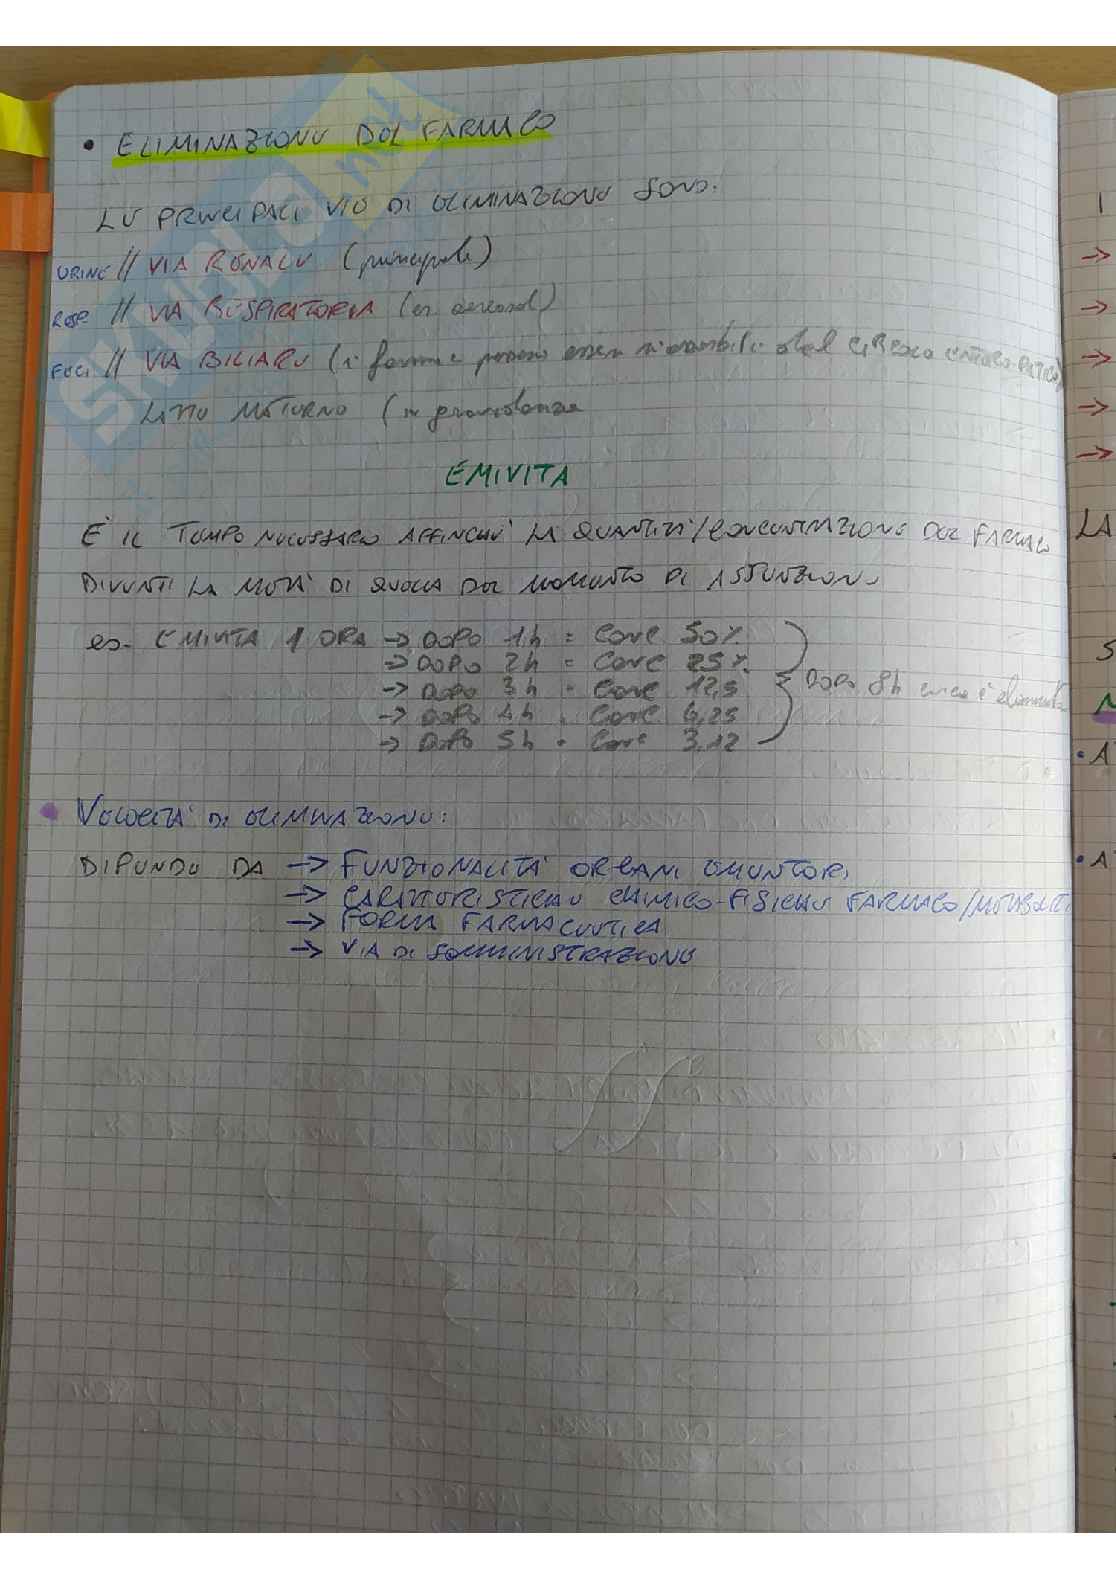 • ELIMINAZIONE DEL FARMACO
LE PRINCIPALI VIE DI ELIMINAZIONE SONO:
URINE // VIA RENALE (principale)
RESP. // VIA RESPIRATORIA (es aerosol)
FECI // VIA BILIARE (i farmaci possono essere riassorbiti dal CIRCOLO ENTERO-EPATICO)
LATTE MATERNO (in gravidanza
EMIVITA
È IL TEMPO NECESSARIO AFFINCHÈ LA QUANTITÀ/CONCENTRAZIONE DEL FARMACO
DIVENTI LA METÀ DI QUELLA DEL MOMENTO DI ASSUNZIONE
es. EMIVITA 1 ORA → DOPO 1h = CONC 50%
→ DOPO 2h = CONC 25%
→ DOPO 3h = CONC 12,5
→ DOPO 4h = CONC 6,25
→ DOPO 5h = CONC 3,12
} DOPO 8h circa è eliminato
VELOCITÀ DI ELIMINAZIONE:
DIPENDE DA → FUNZIONALITÀ ORGANI EMUNTORI
→ CARATTERISTICHE CHIMICO-FISICHE FARMACO/METABOLITI
→ FORMA FARMACEUTICA
→ VIA DI SOMMINISTRAZIONE
LA
S
• A
• A
SKUOLA.net